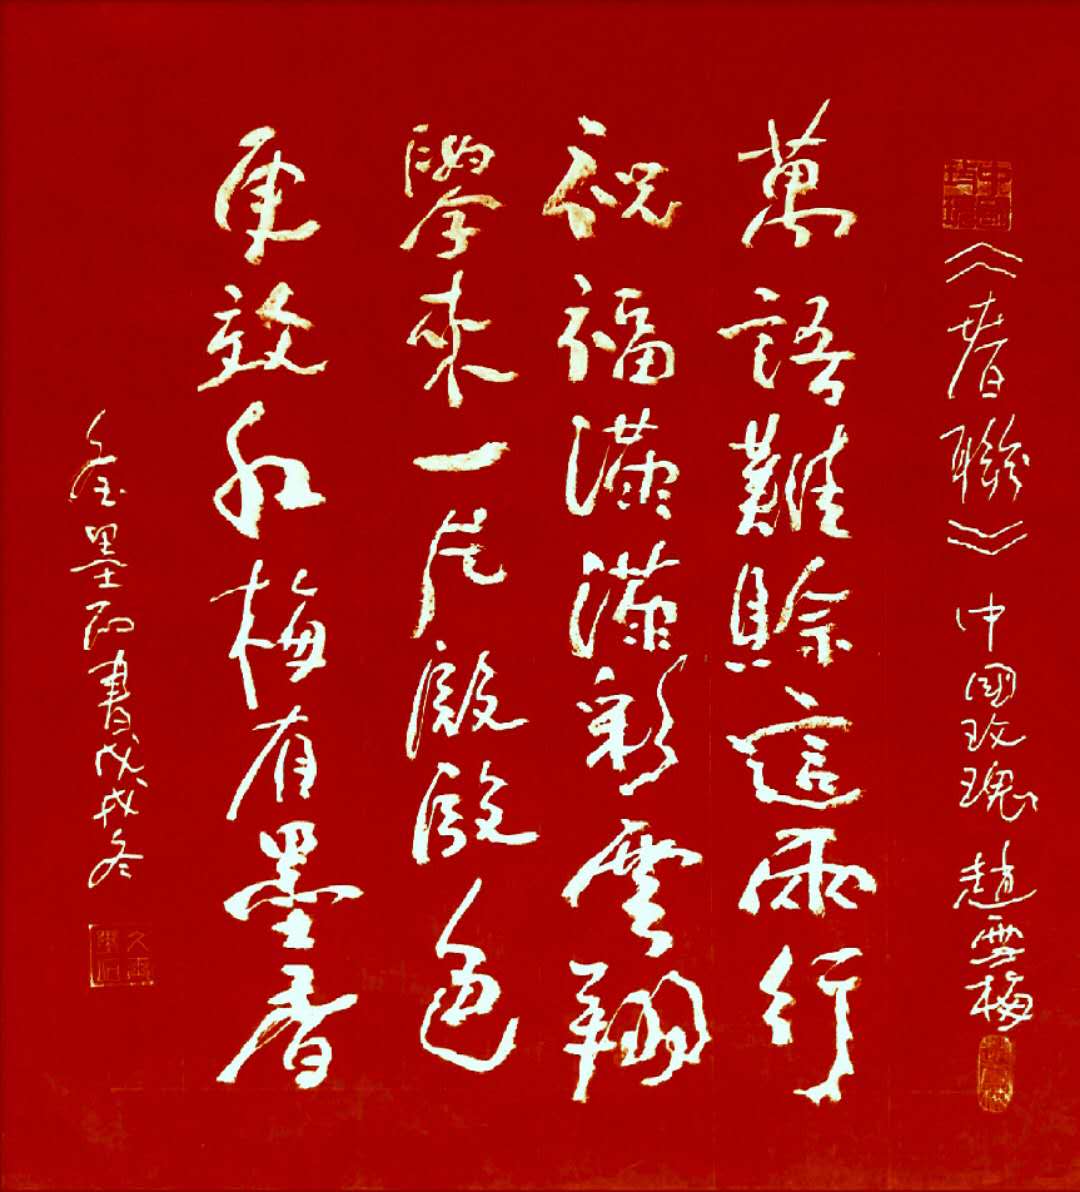 《春聯》 中國玫瑰 趙雪梅
萬語難賒這兩行
祝福滿滿彩雲翔
舉來一片殷殷色
更效紅梅有墨香
墨 書戊戌冬